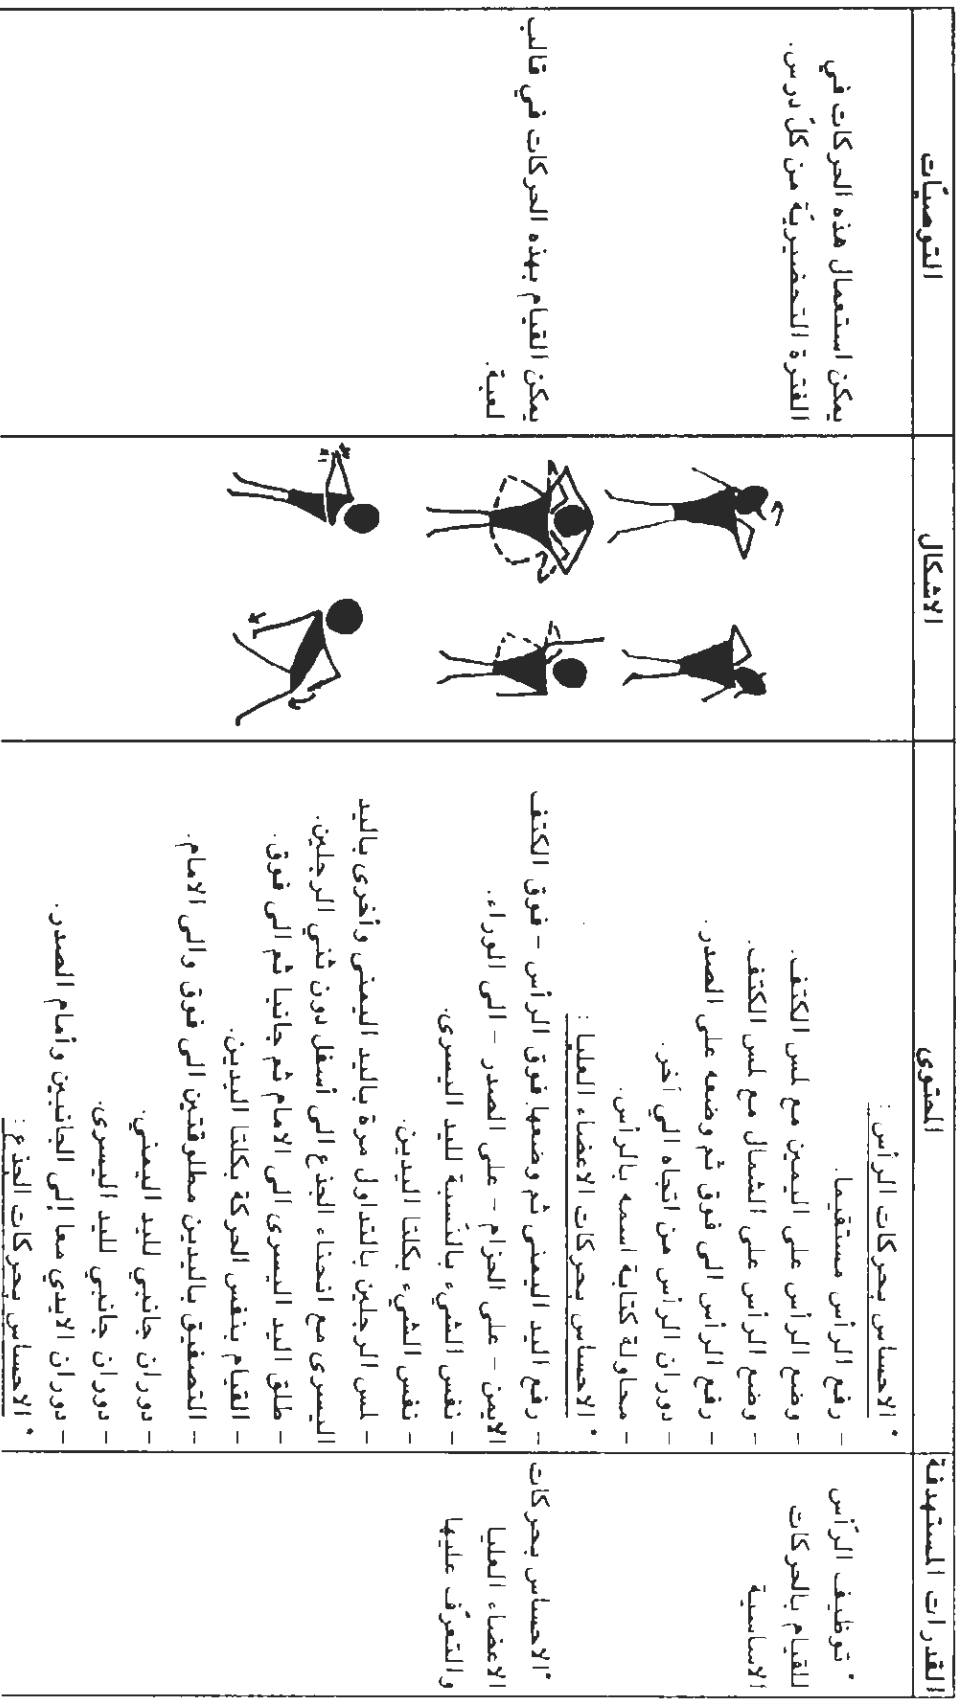 القدرات المستهدفة
المحتوى
الاشكال
التوصيّات
* توظيف الرّأس
للقيام بالحركات
الاساسية
*الاحساس بحركات
الاعضاء العليا
والتعرّف عليها
* الاحساس بحركات الرأس :
- رفع الرأس مستقيما .
- وضع الرأس على اليمين مع لمس الكتف.
- وضع الرأس على الشمال مع لمس الكتف.
- رفع الرأس الى فوق ثم وضعه على الصدر.
- دوران الرأس من اتجاه الي آخر.
- محاولة كتابة اسمه بالرأس.
* الاحساس بحركات الاعضاء العليا :
- رفع اليد اليمنى ثم وضعها فوق الرأس - فوق الكتف
الايمن - على الحزام - على الصدر - الى الوراء.
- نفس الشيء بالنّسبة لليد اليسرى.
- نفس الشيء بكلتا اليدين.
- لمس الرجلين بالتداول مرة باليد اليمنى وأخرى باليد
اليسرى مع انحناء الجذع الى أسفل دون ثني الرجلين.
- طلق اليد اليسرى الى الامام ثم جانبا ثم الى فوق.
- القيام بنفس الحركة بكلتا اليدين.
- التصفيق باليدين مطلوقتين الى فوق والى الامام.
- دوران جانبي لليد اليمني.
- دوران جانبي لليد اليسرى.
- دوران الايدي معا إلى الجانبين وأمام الصدر.
* الاحساس بحركات الجذع :
يمكن استعمال هذه الحركات في
الفترة التحضيريّة من كلّ درس.
يمكن القيام بهذه الحركات في قالب
لعبة.